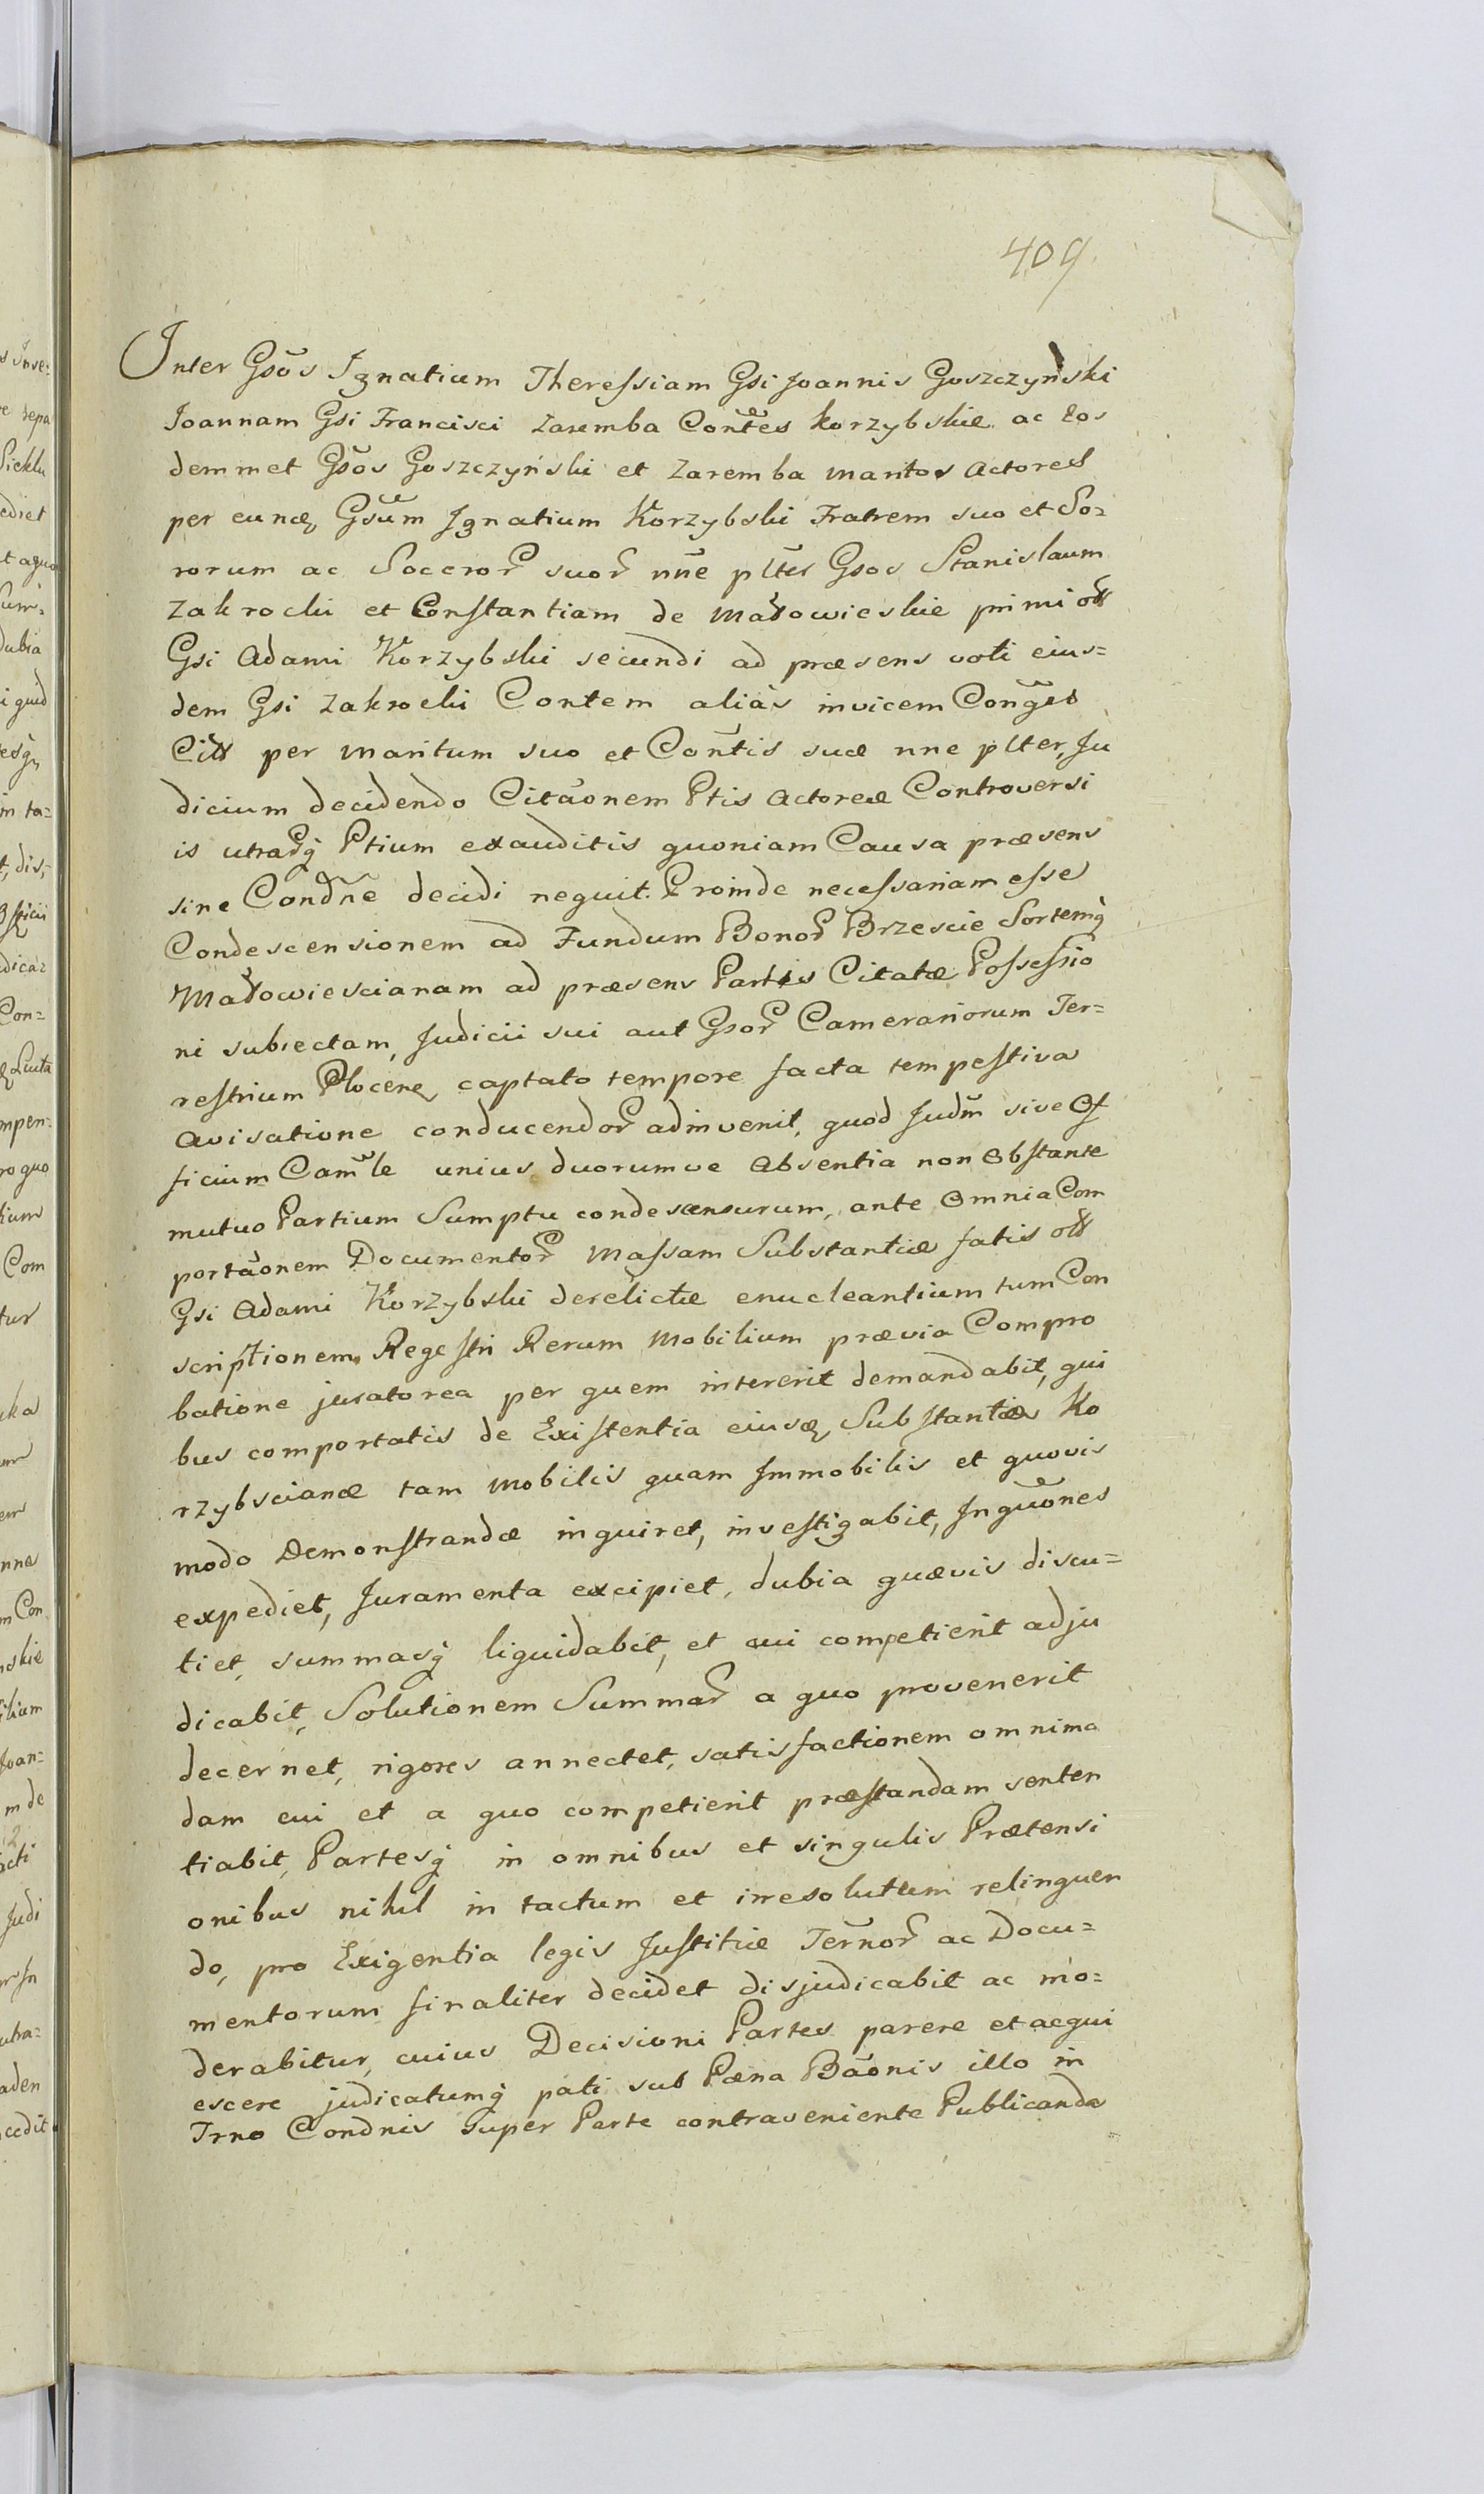 409.
Inter Gsõs Ignatium Theressiam Gsi Joannis Goszczyński
Joannam Gsi Francisci Zaremba Con̄tes Korzybskie ac Eos
demmet Gsõs Goszczyński et Zaremba Maritos Actores
per eund Gsūm Ignatium Korzybski Fratrem suo et So=
rorum ac Soceror suor nñe plt̄er Gsos Stanislaum
Zakrocki et Constantiam de Madowieskie primi oll
Gsi Adami Korzybski secundi ad præsens voti eius=
dem Gsi Zakrocki Contem aliàs invicem Con̄ges
Citt per Maritum suo et Con̄tis suæ nne plter, Ju
dicium decidendo Citãonem Ptis Actoreæ Controversi
is utrarq Ptium exauditis quoniam Causa præsens
sine Cond̃ne decidi nequit. Proinde necessariam esse
Condescensionem ad Fundum Bonor Brzescie Sortemq
Madowiescianam ad præsens Partis Citatæ Possessio
ni subiectam, Judicii sui aut Gsor Camerariorum Ter=
restrium Plocen captato tempore facta tempestiva
avisatione conducendor adinvenit, quod Judm̄ sive Of
ficium Cam̄le unius duorumve Absentia non Obstante
mutuo Partium Sumptu condescensurum, ante Omnia Com
portãonem Documentor Massam Substantiæ fatis oll
Gsi Adami Korzybski derelictæ enucleantium tum Con
scriptionem Regestri Rerum Mobilium prævia Compro
batione juratorea per quem intererit demandabit, qui
bus comportatis de Existentia eiusd Substantiæ Ko
rzybscianæ tam Mobilis quam Immobilis et quovis
modo Demonstrandæ inquiret, investigabit, Inquõnes
expediet, Juramenta excipiet, dubia quævis discu=
tiet, summasq liquidabit, et cui competierit adju
dicabit, Solutionem Summar a quo provenerit
decernet, rigores annectet, satisfactionem omnimo
dam cui et a quo competierit præstandam senten
tiabit, Partesq in omnibus et singulis Prætensi
onibus nihil in tactum et irresolutum relinquen
do, pro Exigentia legis Justitiæ Ter̄nor ac Docu=
mentorum finaliter decidet disjudicabit ac mo=
derabitur, cuius Decisioni Partes parere et acqui
escere judicatumq pati sub Pæna Bãonis illo in
Trno Condnis super Parte contraveniente Publicanda